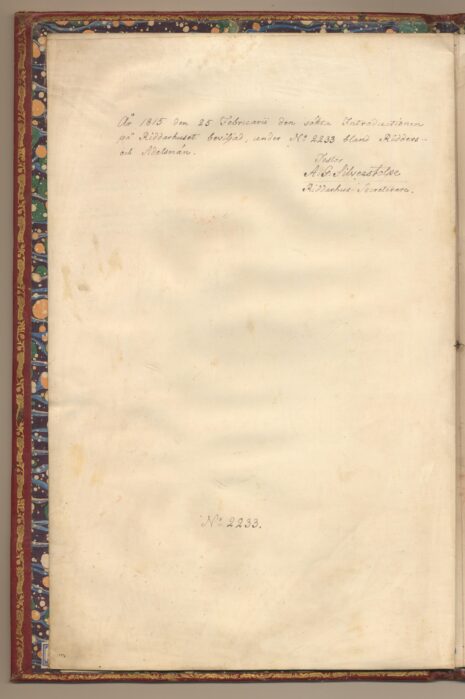 År 1815 den 25 Februarii den sökta Introductionen
på Riddarhuset beviljad, under No 2233 bland Ridders-
och Adelsmän.
Testor
A. G. Silverstolpe
Riddarhus-Secreterare.
No 2233.